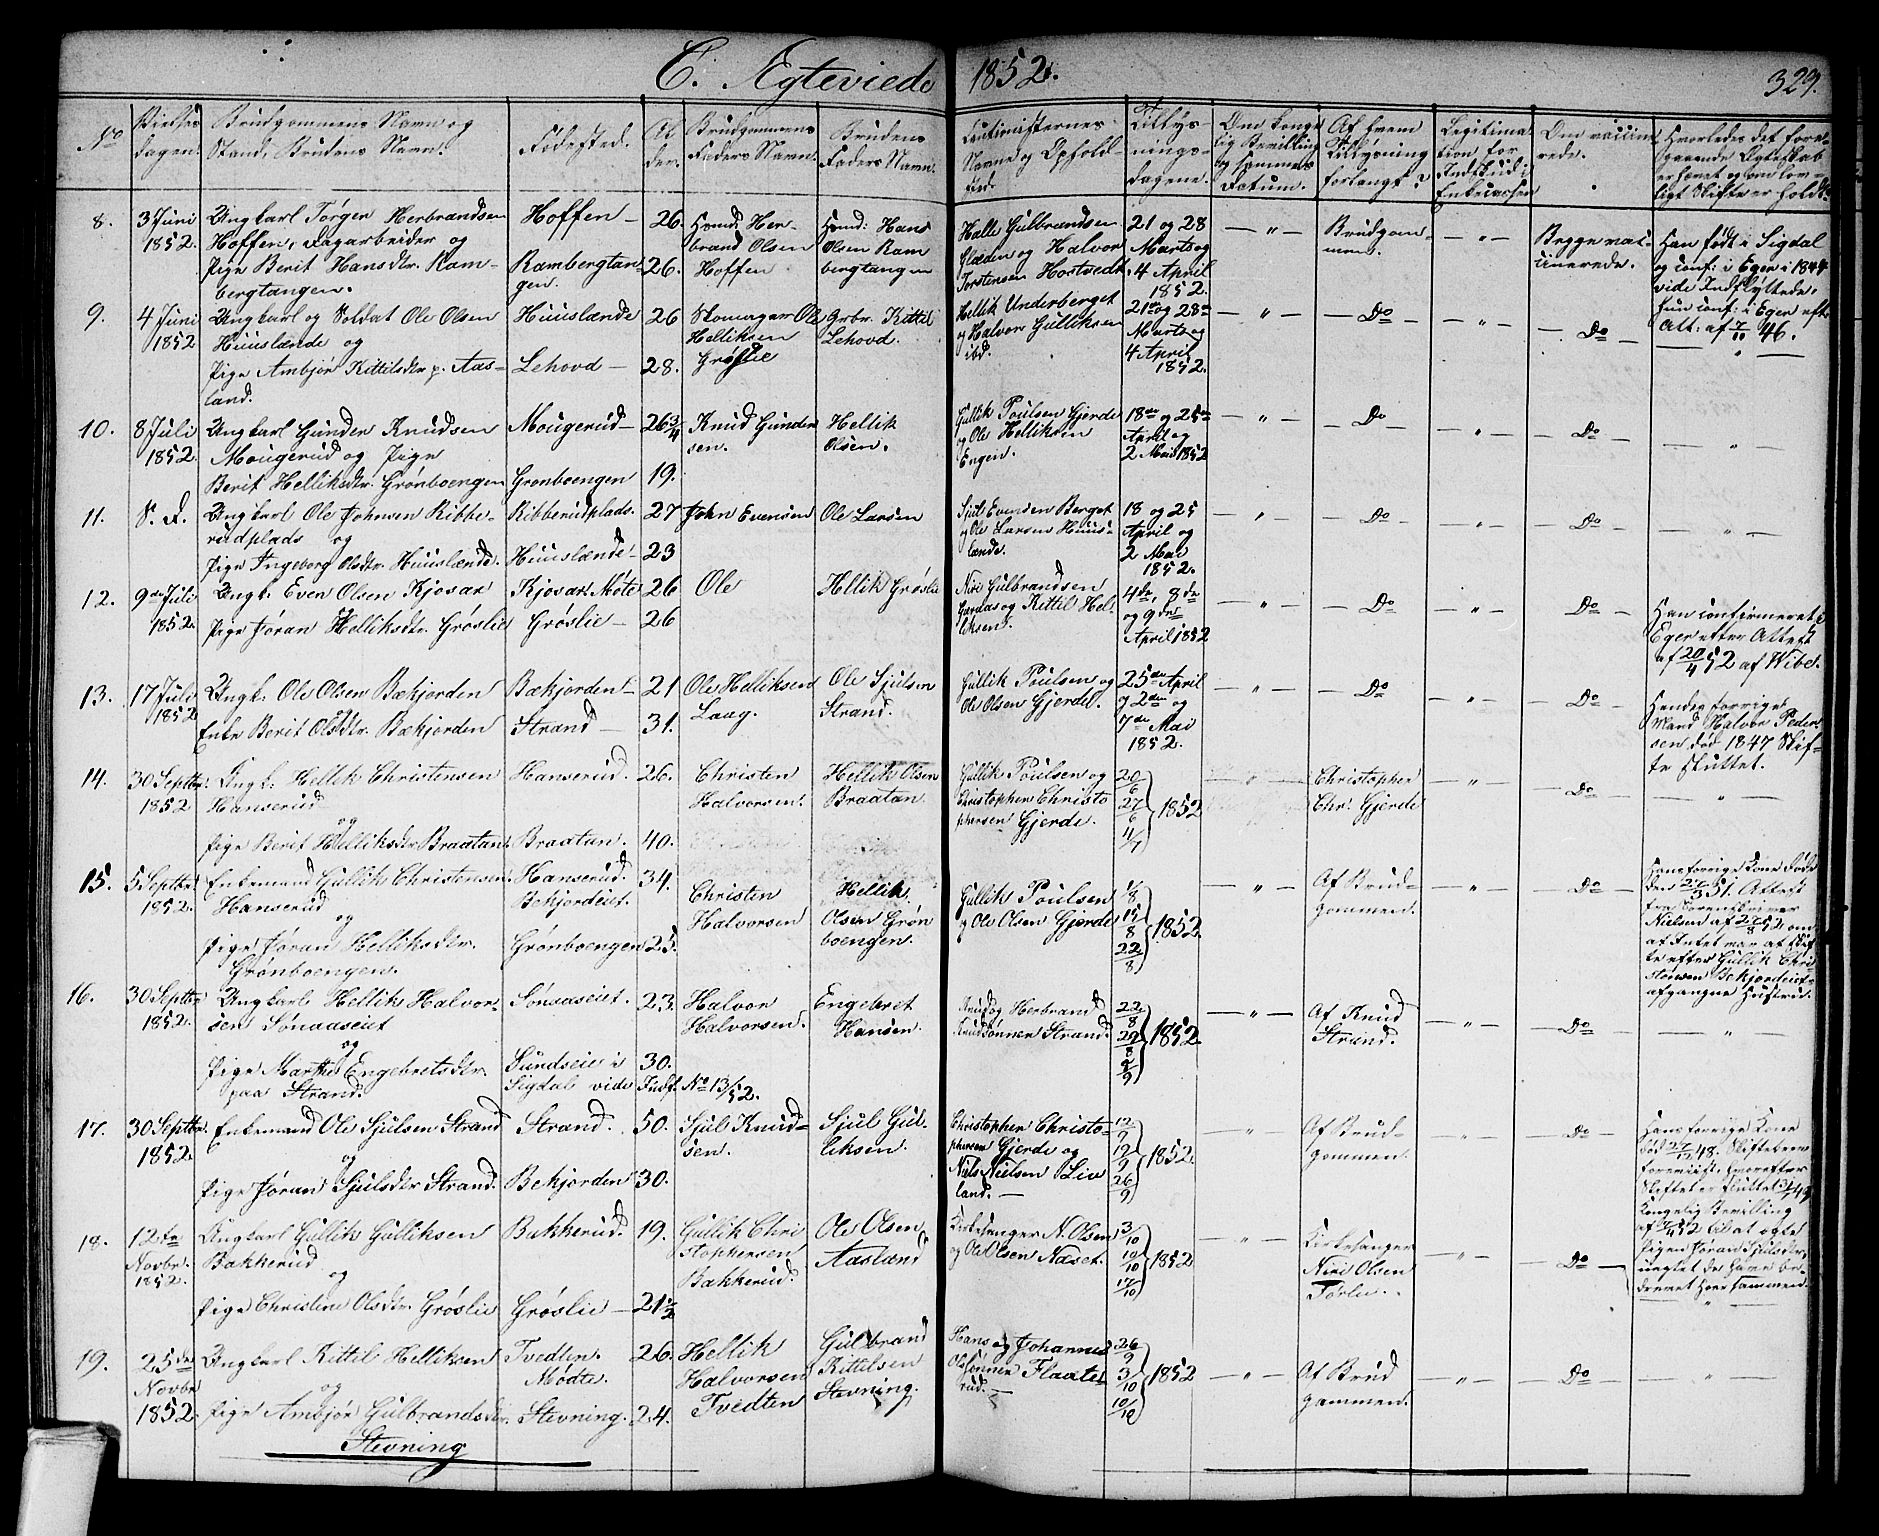 C. Ægteviede 1852.
329.
No
Vielses dagen.
Brudgommens Navn og Stand, Brudens Navn.
Fødested.
Al der.
Brudgommens Faders Navn.
Brudens Faders Navn.
Navne og Ophold
Tillys- nings- dagene.
Om Konge lig Bevilling og sammes Datum.
Af hvem Tillysning forlangt?
Legitima tion for Indskud i Enkecassen
Om vaccine rede.
Hvorledes det fore- gaaende Ægteskab er hævet og om lov- ligt Skifte er holdt.
8.
3 Juni 1852.
Ungkarl Jørgen Herbrandsen
Hoffen, Dagarbeider og
Pige Berit Hansdtr. Ram-
bergtangen.
Hoffen —
Rambergtan-
gen.
26.
26.
Gmd: Her-
brand Olsen
Hoffen
Gmd: Hans
Olsen Ram
bergtangen
Halle Gulbrandsen
Glæden og Halvor
Torstensen Hostvedt.
21 og 28
Marts og
4 April
1852.
— " —
Brudgom-
men.
— " —
Begge vac-
cinerede.
Han født i Sigdal
og conf: i Eger i 1844
vide Indflyttede,
hun conf: i Eger eft.
Att: af 7/10 46.
9.
4 Juni 1852
Ungkarl og Soldat Ole Olsen
Huuslænde og
Pige Ambjør Kittilsdtr p. Aas-
land.
Huuslænde
Lehovd —
26
28.
Skomager Ole
Helliksen
Grøslie
Grbr. Kittil
Lehovd.
Hellik Underberget
og Halvor Gulliksen
ibd.
21de og 28de
Marts og
4 April
1852.
— " —
Do
— " —
— Do —
— " —
10.
8 Juli 1852.
Ungkarl Gunder Knudsen
Mougerud og Pige
Berit Helliksdtr. Grønboengen
Mougerud —
Grønboengen
26 3/4
19.
Knud Gunder
sen.
Hellik
Olsen.
Gullik Poulsen Gjerde
og Ole Helliksen
Engen.
18de og 25de
April og
2 Mai 1852
— " —
— Do
— " —
— Do —
— " —
11.
S. D.
Ungkarl Ole Johnsen Ribbe-
rudplads og
Pige Ingeborg Olsdtr. Huuslænde.
Ribberudplads.
Huuslænde —
27
23
John Evensen
Ole Larsen
Sjul Evensen Berget
og Ole Larsen Huus-
lænde.
18 og 25
April og
2 Mai
1852.
— " —
— Do —
— " —
— Do —
— " —
12.
9de Juli 1852.
Ungk. Even Olsen Kjosar
Pige Jøran Helliksdtr. Grøslie
Kjosar Møte
Grøslie —
26
26
Ole
Hellik Grøslie
Niri Gulbrandsen
og Kittil Hel-
liksen.
4de, 8de
og 9de
April 1852
— " —
— Do —
— " —
— Do —
Han confirmeret i
Eger efter Attest
af 20/4 52 af Wibe.
13.
17 Juli 1852
Ungk. Ole Olsen Bækjorden
og
Enke Berit Olsdtr. Bækjorden
Bækjorden —
Strand —
21
31.
Ole Helliksen
Laag.
Ole Sjulsen
Strand.
Gullik Poulsen og
Ole Olsen Gjerde.
25de April
og 2den og
7de Mai
1852.
— " —
— Do —
— " —
— Do —
Hendes forrige
Mand Halvor Peder-
sen død 1847 Skif-
te sluttet.
14.
30 Septbr. 1852
Ungk. Hellik Christensen
Hanserud
og
Pige Berit Helliksdtr Braatan.
Hanserud.
Braatan.
26.
40.
Christen
Halvorsen.
Hellik Olsen
Braatan.
Gullik Poulsen og
Christopher Christo
phersen Gjerde.
20/6
27/6
4/7
1852
— " —
Christopher
Chr. Gjerde
— " —
— Do —
— " —
15.
5 Septbr 1852.
Enkemand Gullik Christensen.
Hanserud
og
Pige Jøran Helliksdtr.
Grønboengen.
Hanserud.
Bekjordeiet.
Grønboengen
34.
25.
Christen
Halvorsen
Hellik
Olsen Grøn
boengen.
Gullik Poulsen
og Ole Olsen Gjerde
1/8
15/8
22/8
1852.
— " —
Af Brud-
gommen.
— " —
— Do —
Hans forrige Kone døde
den 27/3 51. Attest
fra Sorenskriver
Nielsen af 27/8 52 om
at Intet var at skif-
te efter Gullik Chri
stensen Bekjordeiets
afgangne Hustru.
16.
30 Septbr 1852.
Ungkarl Hellik Halvor-
sen Sønaaseiet
og
Pige Marthe Engebretsdtr.
paa Strand.
Sønaaseiet.
Sundseie i
Sigdal vide
23.
30.
Indf. No 13/52.
Halvor
Halvorsen.
Engebret
Hansen.
Knud og Herbrand
Knudsønner Strand.
22/8
29/8
5/9
1852.
— " —
Af Knud
Strand.
— " —
— Do —
— " —
17.
30 Septbr. 1852.
Enkemand Ole Sjulsen Strand
og
Pige Jøran Sjulsdtr Strand.
Strand.
Bekjorden
50.
30.
Sjul Knud-
sen.
Sjul Gul-
liksen.
Christopher Christo-
phersen Gjerde og
Niels Nielsen Lie
land. —
12/9
19/9
26/9
1852.
— " —
Af Brud-
gommen.
— " —
— Do —
Hans forrige Kone
død 48. Skiftebrev
foreviist, hvorefter
Skiftet er sluttet 49
Kongelig Bevilling
af 52 til at ægte
Pigen Jøran Sjulsdtr,
uagtet de have be-
drevet Hoer sammen.
18.
12te Novbr. 1852.
Ungkarl Gullik Gulliksen
Bakkerud
og
Pige Christine Olsdtr. Grøslie
Bakkerud.
Grøslie —
19.
21 1/2
Gullik Chri
stophersen
Bakkerud.
Ole Olsen
Aaslænd
Kirkesanger N. Olsen
og Ole Olsen Næset.
3/10
10/10
17/10
1852
— " —
Kirkesanger
Niri Olsen
— " —
— Do —
19.
25de Novbr 1852.
Ungkarl Kittil Helliksen
og
Pige Ambjør Gulbrandsdtr.
Stevning
Tvedten.
Modte.
Stevning.
26.
24.
Hellik
Halvorsen
Tvedten
Gulbrand
Kittelsen
Stevning.
Hans og Johannes
Olssønner Flaate
rud. —
26/9
3/10
10/10
1852
— " —
Af Brud
gommen.
— " —
— Do —
— " —